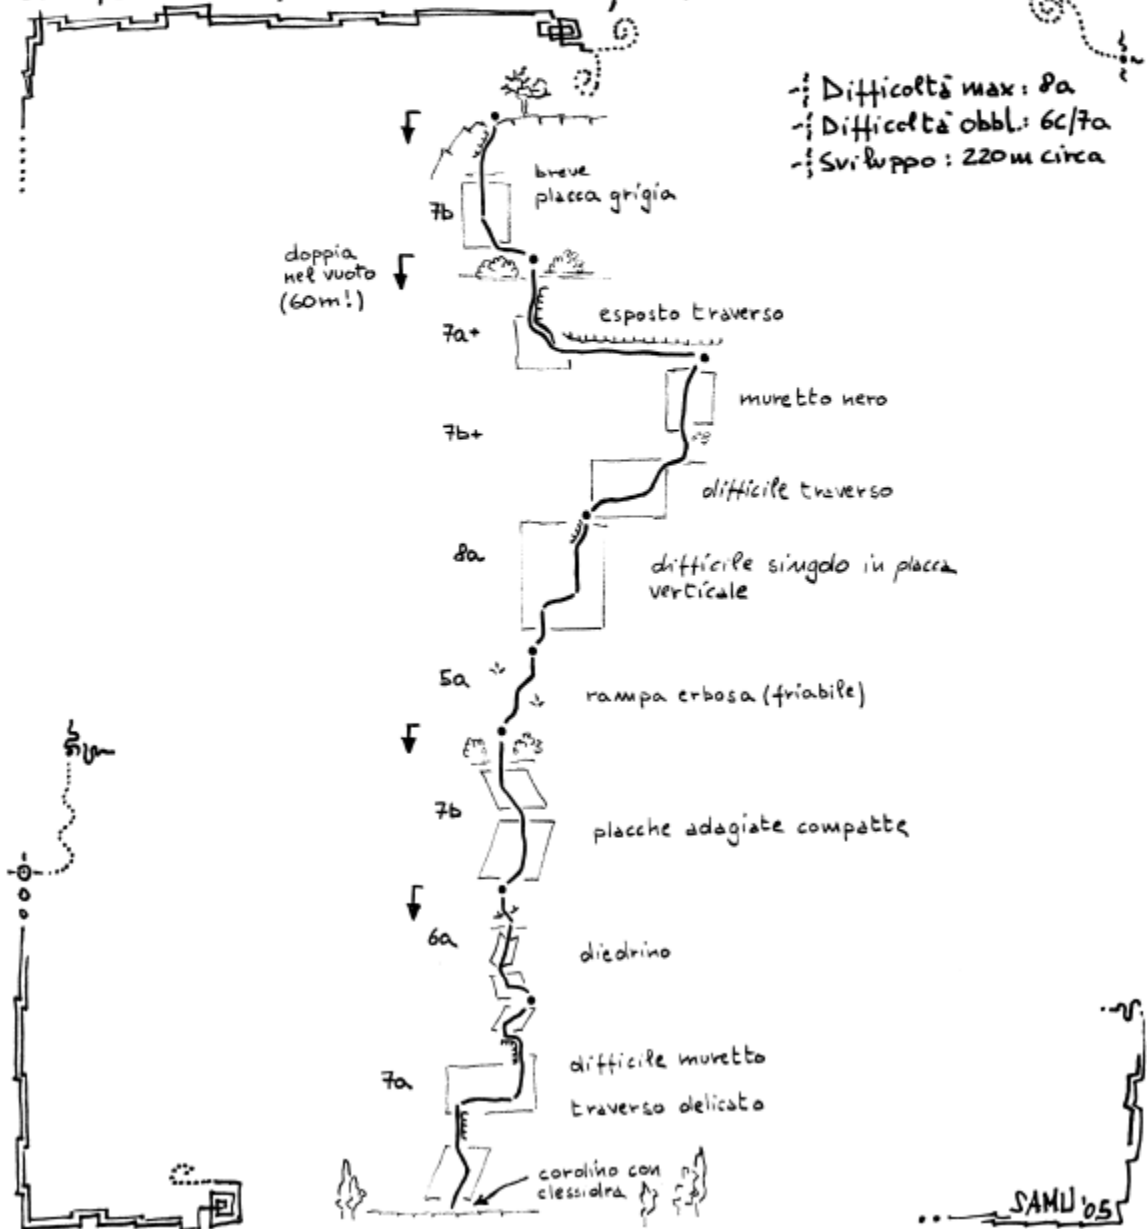 -¦ Difficoltà max: 8a
-¦ Difficoltà obbl.: 6c/7a
-¦ Sviluppo: 220m circa
breve
placca grigia
7b
doppia
nel vuoto
(60m!)
esposto traverso
7a+
muretto nero
7b+
difficile traverso
8a
difficile singolo in placca
verticale
5a
rampa erbosa (friabile)
7b
placche adagiate compatte
6a
diedrino
difficile muretto
7a
traverso delicato
cordino con
clessidra
SAMU '05